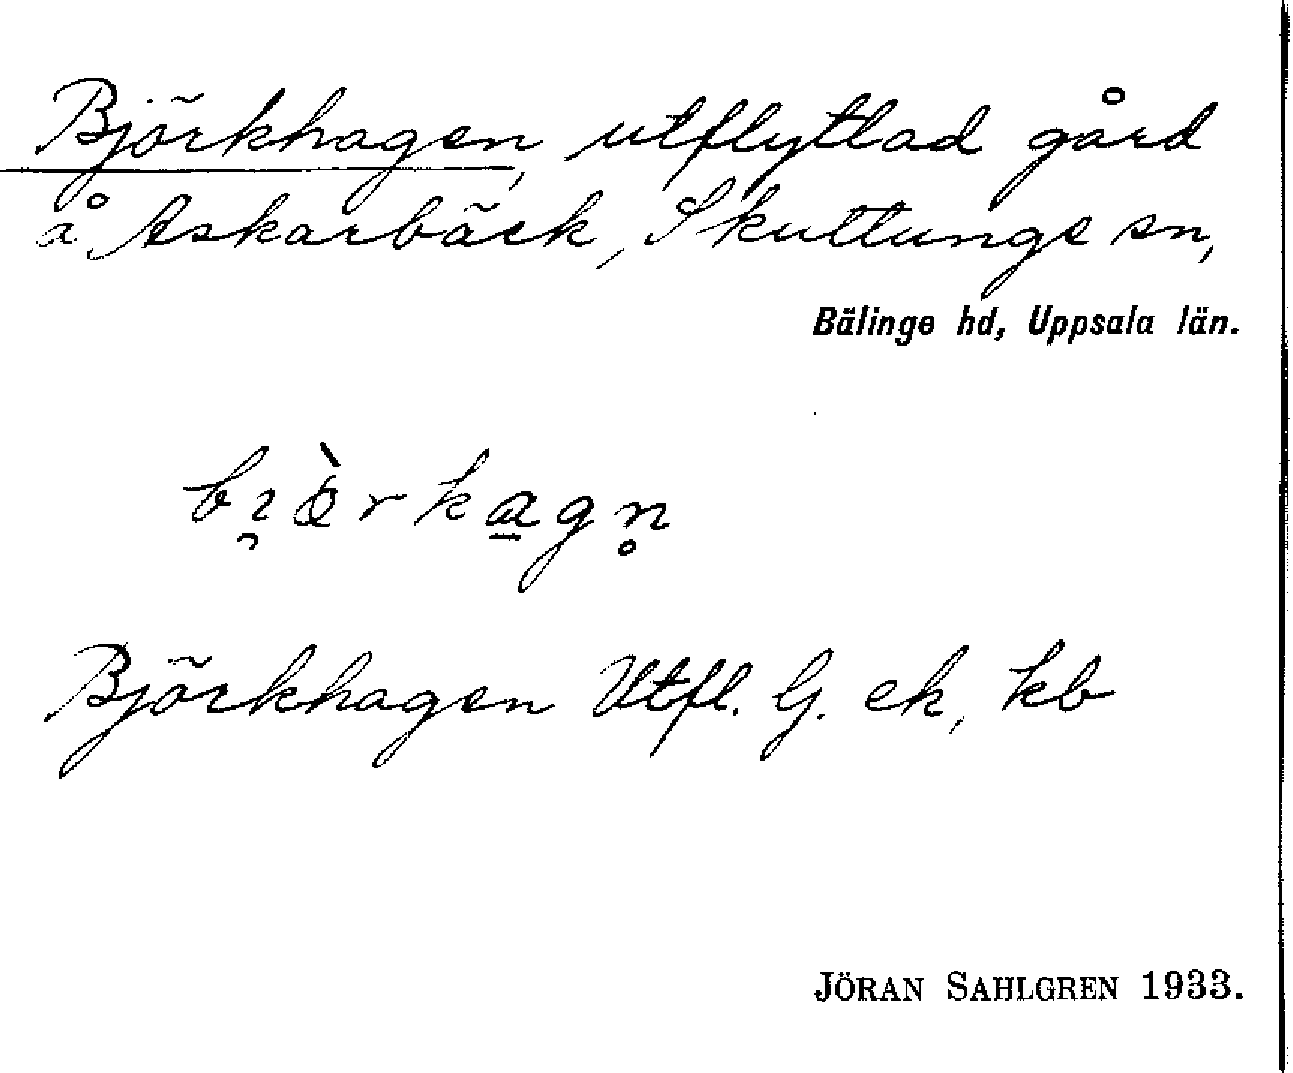 Björkhagen, utflyttad gård
å Askarbäck, Skuttunge sn,
Bälinge hd, Uppsala län.
bı̯œ̀rka̱gn̥
Björkhagen Utfl. G. ek, kb
JÖRAN SAHLGREN 1933.